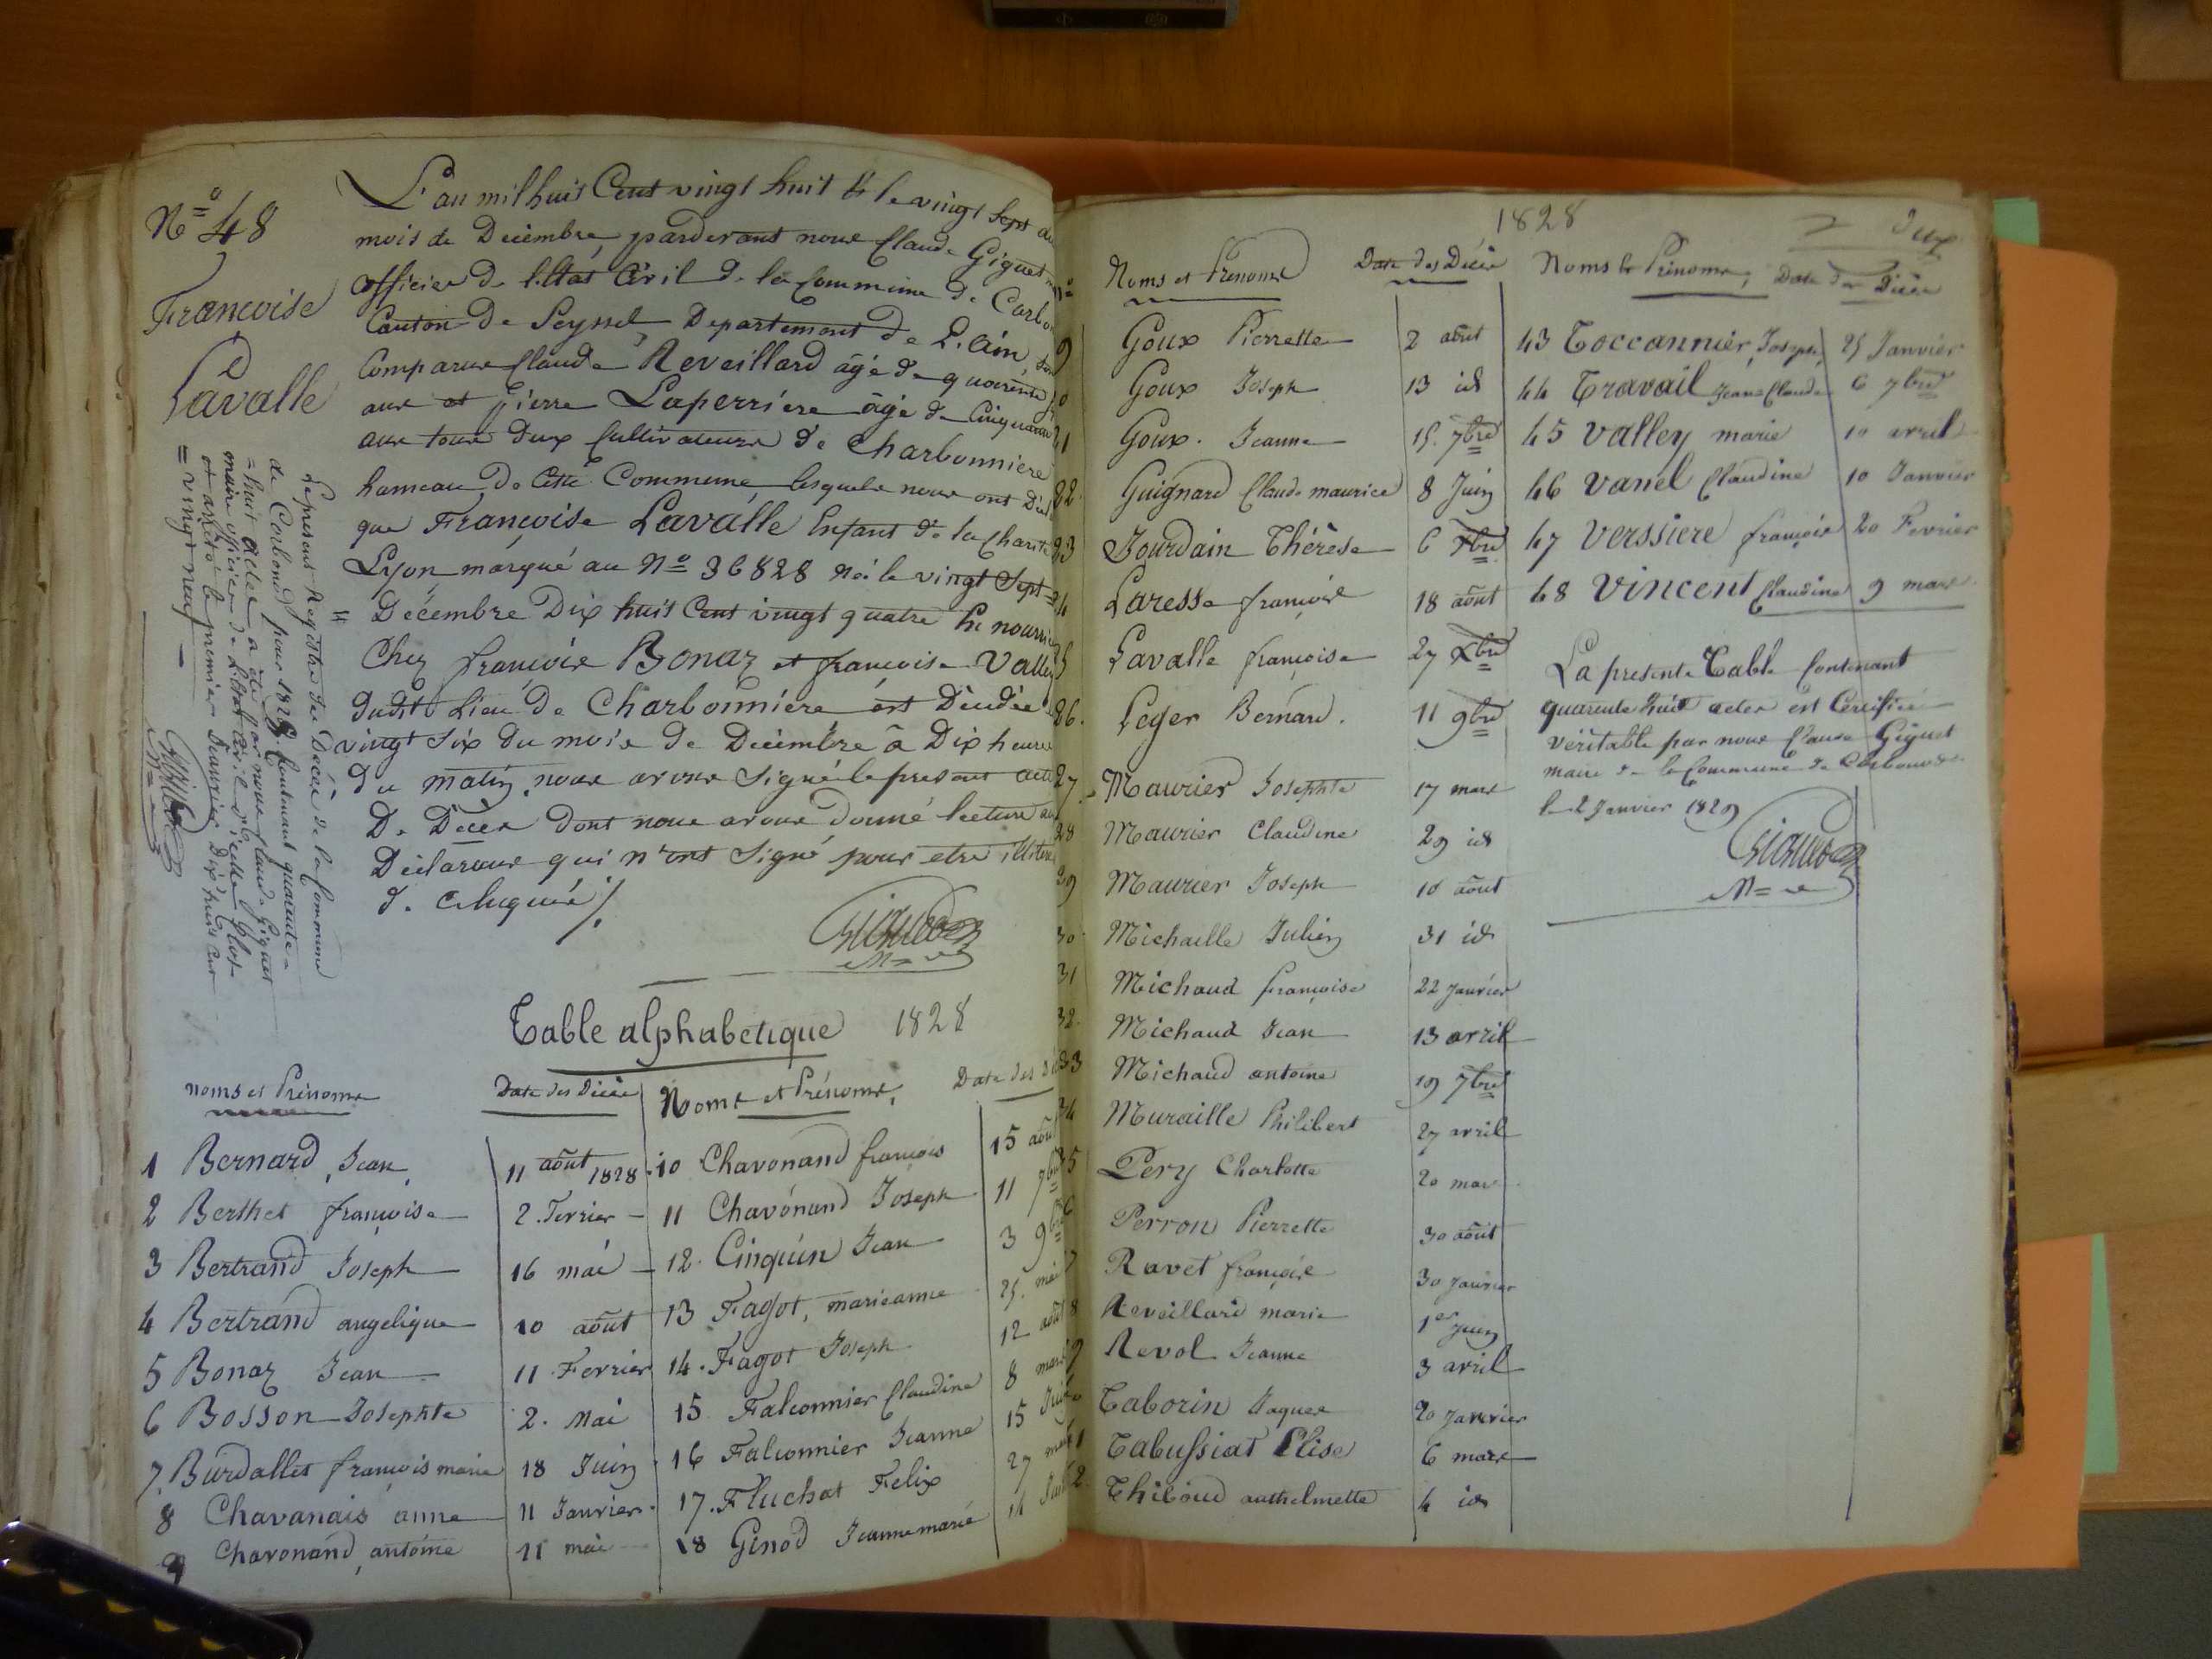 N° 48
Francoise
Lavalle
L'an mil huit Cent vingt huit & le vingt Sept du
mois de Decembre, pardevant nous Claude Giguet
officier de l'Etat Civil de la Commune de Corbo
Canton de Seyssel, Departement de L'ain,
Comparus Claude Reveillard âgé de quarente
ans et pierre Laperriere âgé de Cinquante
ans tous deux Cultivateurs de Charbonniere
hameau de Cette Commune lesquels nous ont Décl
que Françoise Lavalle Enfant de la Charité
Lyon marqué au N° 36828 née le vingt Sept
Décembre Dix huit Cent vingt quatre En nourric
Chez françois Bonaz et françoise Valley
dudit Lieu de Charbonniere est Décédée
vingt Six du mois de Decembre à Dix heures
du matin, nous avons Signé le present acte
De Décès dont nous avons donné lecture aux
Déclarans qui n'ont Signé pour etre illitere
de ce enquis /.
Le present Registre des Décès de la Commune
de Corbonod pour 1828 Contenant quarante
= huit actes a été par nous Claude Giguet
maire officier de l'Etat Civil d'icelle Clos
et arreté le premier Janvier Dix huit Cent
= vingt neuf =
Table alphabetique 1828
noms et Prénoms Date des Décès Noms et Prénoms Date des Dé
1 Bernard Jean 11 août 1828
2 Berthet françoise 2. Fevrier
3 Bertrand Joseph 16 mai
4 Bertrand angelique 10 août
5 Bonaz Jean 11 Fevrier
6 Bosson Josephte 2. Mai
7. Burdallet françois marie 18 Juin
8 Chavanais anne 11 Janvier
9 Chavonand antoine 11 mai
10 Chavonand françois 15 août
11 Chavonand Joseph 11 7bre
12. Cinquin Jean 3 9bre
13 Fagot, marieanne 25. mai
14. Fagot Joseph 12 août
15 Falconnier Claudine 8 mars
16 Falconnier Jeanne 15 Juin
17. Fluchat Felix 27 mars
18 Ginod Jeanne marie 14
1828
Deux
Noms et Prenoms Date des Décès Noms & Prénoms, Date des Décès
Goux Pierrette 2 août
Goux Joseph 13 id
Goux. Jeanne 15. 7bre
22. Guignard Claude maurice 8 Juin
23 Jourdain Thérèse 6 Xbre
Laresse françoise 18 août
Lavalle françoise 27 Xbre
26. Leger Bernard. 11 9bre
27. Maurier Josephte 17 mars
28 Maurier Claudine 29 id
29 Maurier Joseph 10 août
30 Michaille Julien 31 id
31 Michaud françoise 22 Janvier
32. Michaud Jean 13 avril
33 Michaud antoine 19 7bre
34 Muraille Philibert 27 avril
35 Pery Charlotte 20 mars
Perron Pierrette 30 août
Ravet françoise 30 Janvier
Reveillard marie 1er Juin
Revol Jeanne 3 avril
Taborin Jaques 20 Janvier
Tabussiat Elise 6 mars
Thiboud anthelmette 4 id
43 Toccannier, Joseph 25 Janvier
44 Travail Jean Claude 6 7bre
45 Valley marie 10 avril
46 Vanel Claudine 10 Janvier
47 Verssiere françoise 20 Fevrier
48 Vincent Claudine 9 mars
La presente Table Contenant
quarente huit actes est Certifiée
véritable par nous Claude Giguet
maire de la Commune de Corbonod
le 2 Janvier 1829